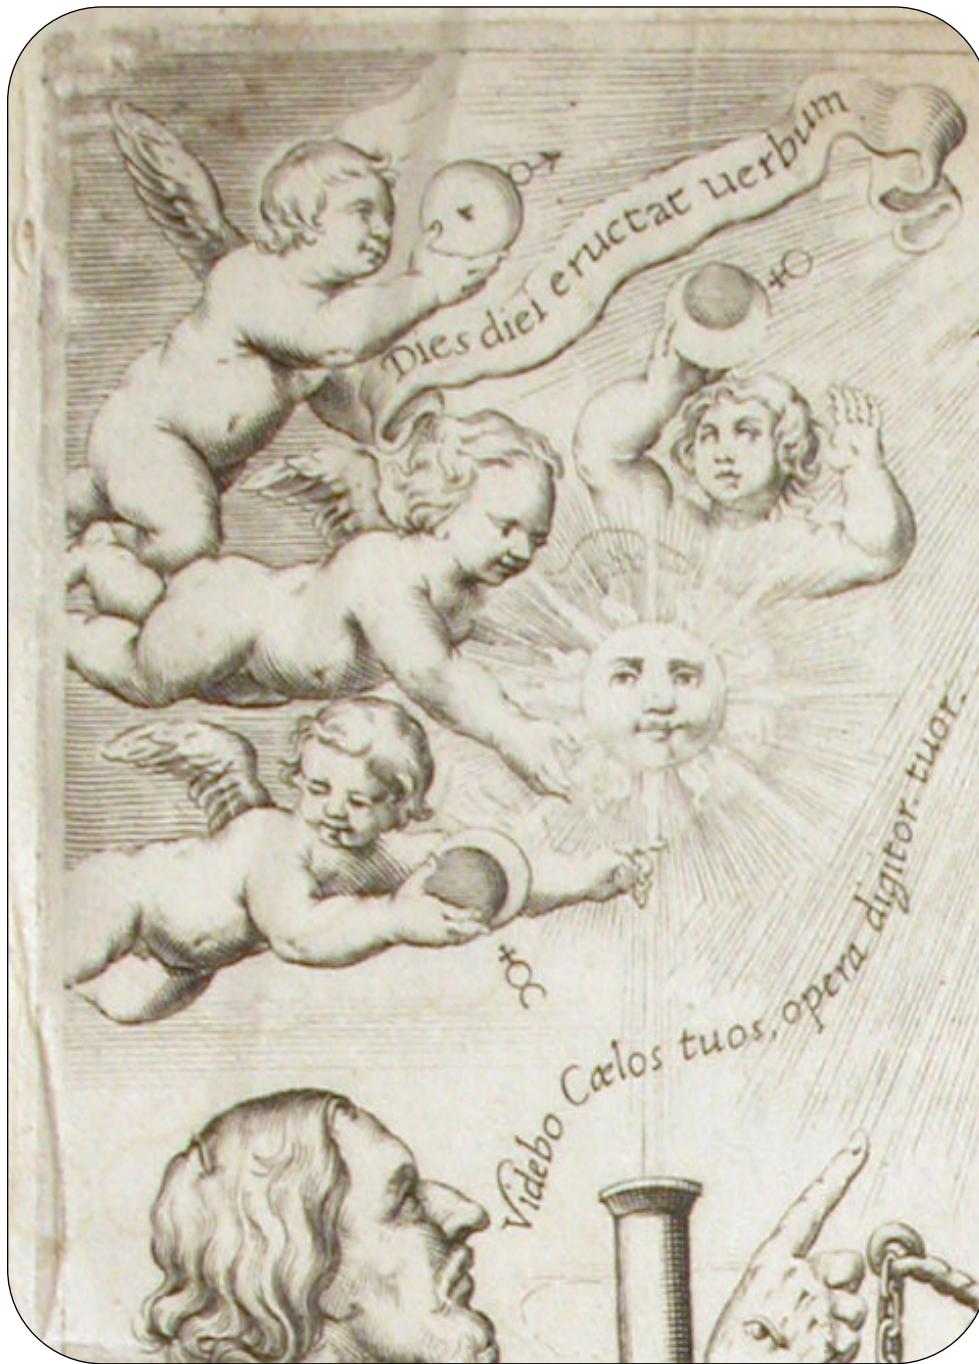 Dies diei eructat uerbum
Videbo Cœlos tuos, opera digitor. tuor.